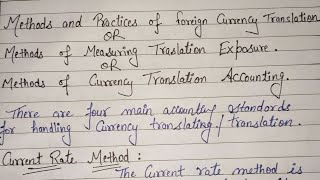 Methods and Practices of foreign Currency Translation
OR
Methods of Measuring Traslation Exposure.
OR
Methods of Currency Translation Accounting.
There are four main accounting standards
for handling currency translating/translation.
Current Rate Method:
The Current rate method is